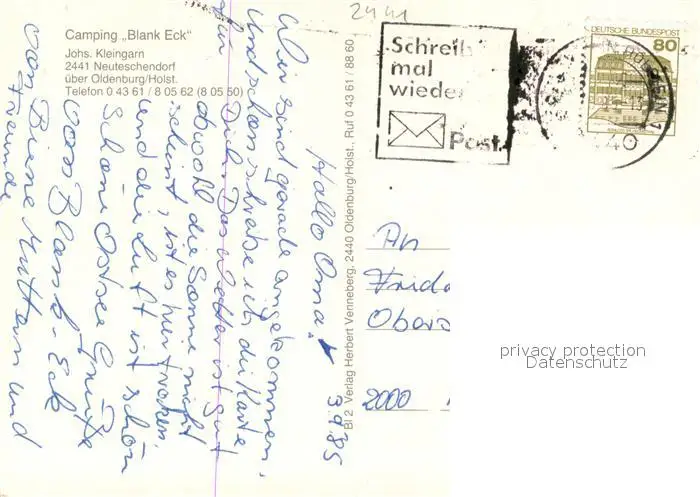 2441
Camping „Blank Eck"
Johs. Kleingarn
2441 Neuteschendorf
über Oldenburg/Holst.
Telefon 0 43 61 / 8 05 62 (8 05 60)
Schreib
mal
wieder
Post
DEUTSCHE BUNDESPOST
80
3.9.85
Hallo Oma!
Wir sind gerade angekommen,
und schon schreibe ich die Karte
an Dich. Das Wetter ist gut
obwohl die Sonne nicht
scheint, ist es hier trocken.
und die Luft ist schön
Schöne Ostsee Grüße
vom Blank-Eck
von Biene Muttern und
Freunde
Bl 2 Verlag Herbert Venneberg, 2440 Oldenburg/Holst., Ruf 0 43 61 / 88 60
An
Frida
2000
privacy protection
Datenschutz